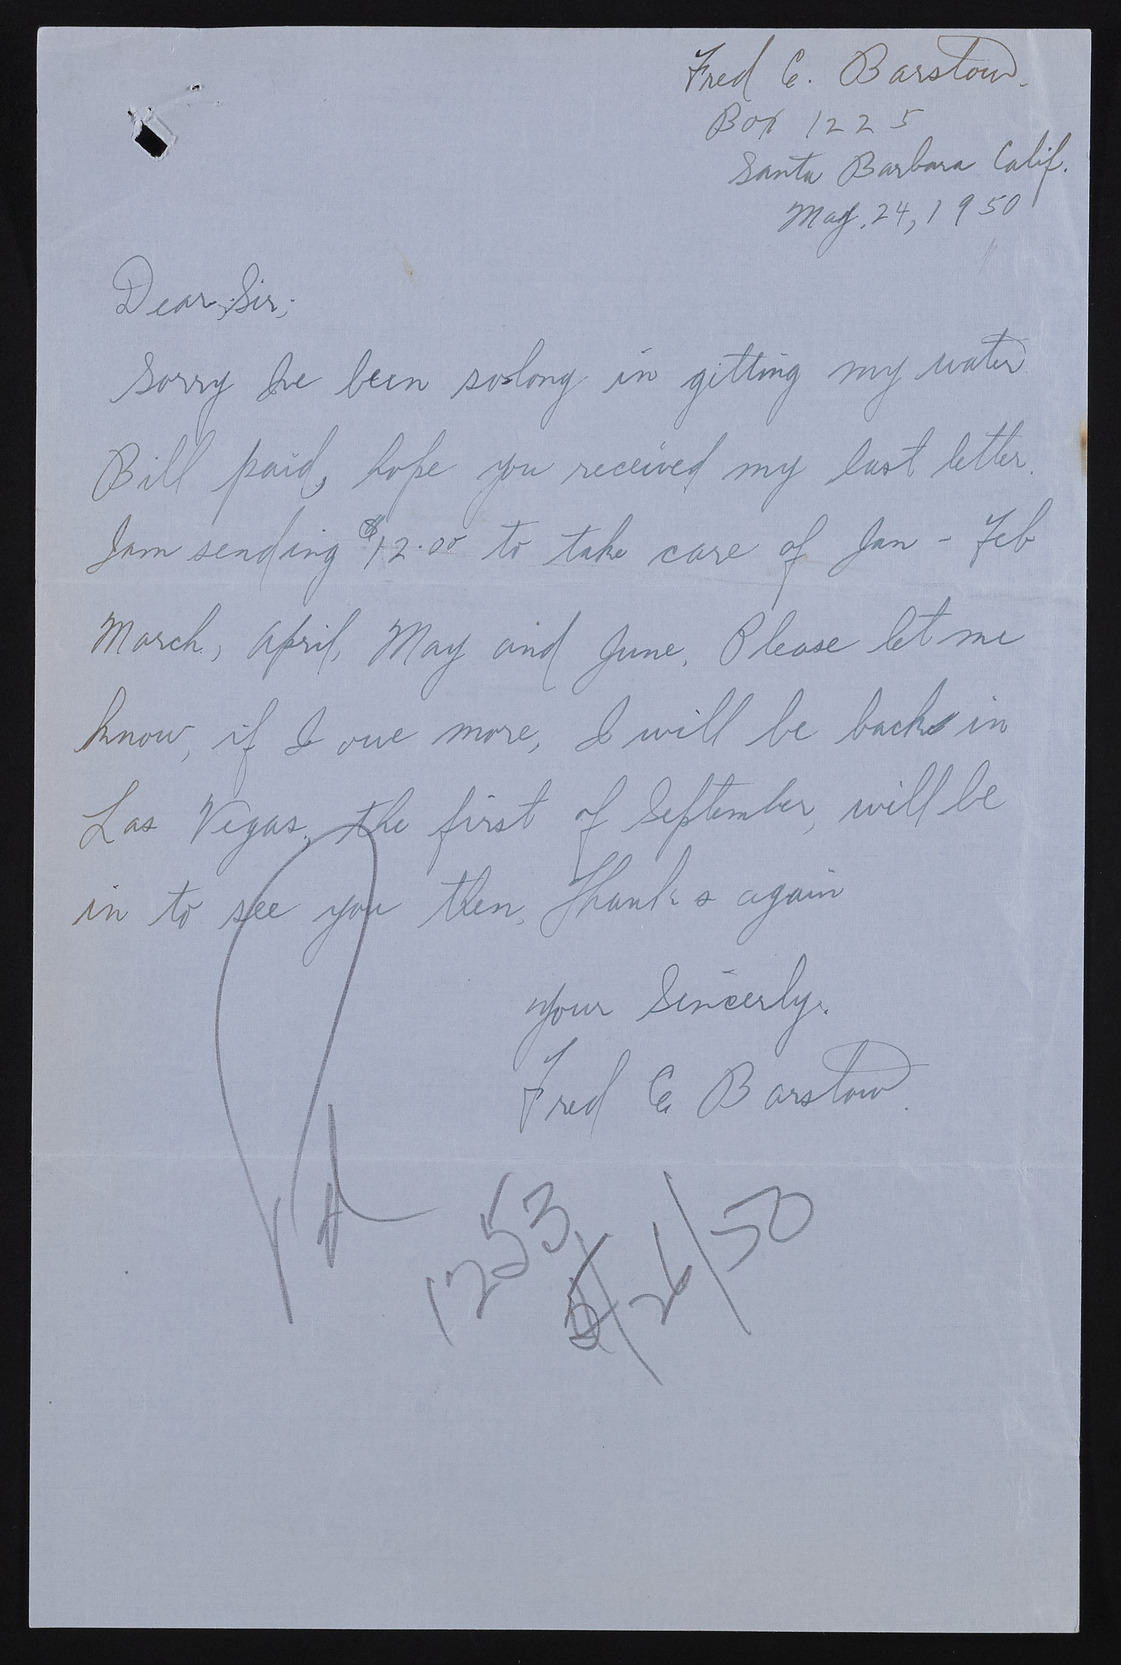 Fred C. Barstow.
Box 1225
Santa Barbara Calif.
May. 24, 1950
Dear, Sir;
Sorry Ive been so long in gitting my water
Bill paid, hope you received my last letter.
I am sending $12.00 to take care of Jan - Feb
March, April, May and June. Please let me
know, if I owe more, I will be back in
Las Vegas, the first of September, will be
in to see you then. Thanks again
your Sincerly.
Fred C Barstow.
Pd
1253
5/26/50